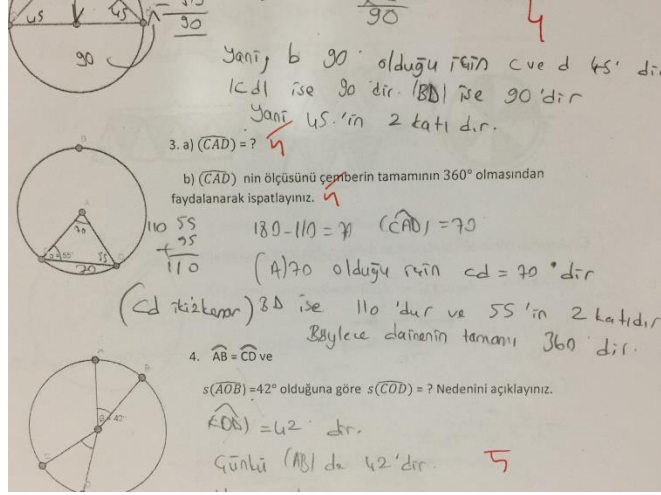 45
45
90
90
90
4
Yani, b 90° olduğu için c ve d 45' di
|cd| ise 90 'dir. |BD| ise 90 'dir
Yani 45.'in 2 katı dır.
3. a) (CAD) = ?
b) (CAD) nin ölçüsünü çemberin tamamının 360° olmasından
faydalanarak ispatlayınız.
70
55
70
110
55
+
110
180-110=70 (CAD) = 70
(A)70 olduğu için cd = 70 ° dir
(Cd ikizkenar) BD ise 110 'dur ve 55 'in 2 katıdır
Böylece dairenin tamamı 360 dir.
4. AB = CD ve
s(AOB) =42° olduğuna göre s(COD) = ? Nedenini açıklayınız.
42°
(COD) = 42 dir.
Çünkü (AB) da 42'dir.
5